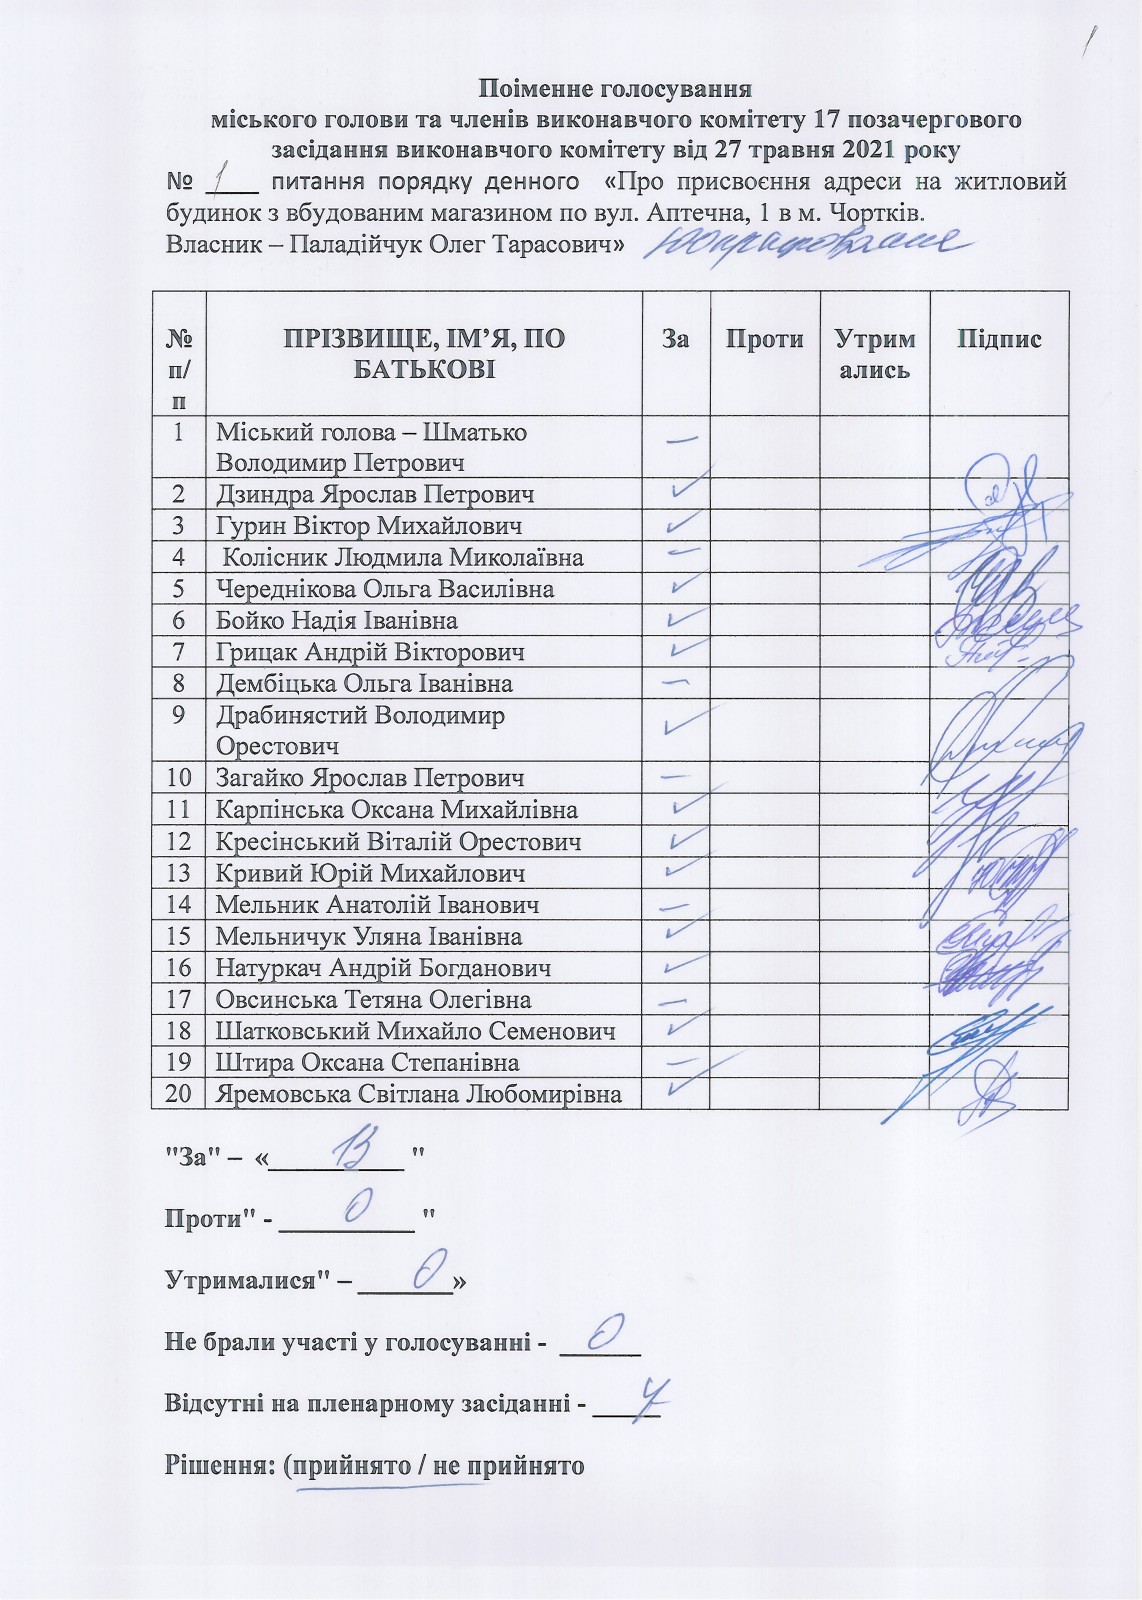 1
Поіменне голосування
міського голови та членів виконавчого комітету 17 позачергового
засідання виконавчого комітету від 27 травня 2021 року
№ 1 питання порядку денного «Про присвоєння адреси на житловий
будинок з вбудованим магазином по вул. Аптечна, 1 в м. Чортків.
Власник – Паладійчук Олег Тарасович»
№ п/п ПРІЗВИЩЕ, ІМ’Я, ПО БАТЬКОВІ За Проти Утримались Підпис
1 Міський голова – Шматько –
Володимир Петрович
2 Дзиндра Ярослав Петрович ✓
3 Гурин Віктор Михайлович ✓
4 Колісник Людмила Миколаївна –
5 Череднікова Ольга Василівна ✓
6 Бойко Надія Іванівна ✓
7 Грицак Андрій Вікторович ✓
8 Дембіцька Ольга Іванівна –
9 Драбинястий Володимир ✓
Орестович
10 Загайко Ярослав Петрович –
11 Карпінська Оксана Михайлівна ✓
12 Кресінський Віталій Орестович ✓
13 Кривий Юрій Михайлович ✓
14 Мельник Анатолій Іванович –
15 Мельничук Уляна Іванівна ✓
16 Натуркач Андрій Богданович ✓
17 Овсинська Тетяна Олегівна –
18 Шатковський Михайло Семенович ✓
19 Штира Оксана Степанівна –
20 Яремовська Світлана Любомирівна ✓
"За" – « 13 "
Проти" - 0 "
Утрималися" – 0 »
Не брали участі у голосуванні - 0
Відсутні на пленарному засіданні - 7
Рішення: (прийнято / не прийнято